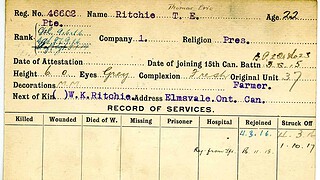 Thomas
Reg. No. 46602 Name Ritchie T. E. Age 22
Pte.
Rank Company 1. Religion Pres.
Date of Attestation Date of joining 15th Can. Battn
Height 6 0 Eyes Grey Complexion Fresh Original Unit 37
Decorations M.M. Farmer.
Next of Kin ( )W.K. Ritchie. Address Elmsvale. Ont. Can.
RECORD OF SERVICES.
Killed Wounded Died of W. Missing Prisoner Hospital Rejoined Struck Off
4.3.16.
16.11.16. 1.10.17